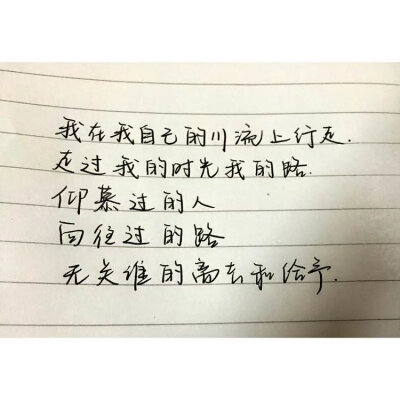 我在我自己的川流上行走.
走过我的时光我的路.
仰慕过的人
向往过的路
无关谁的离去和给予.